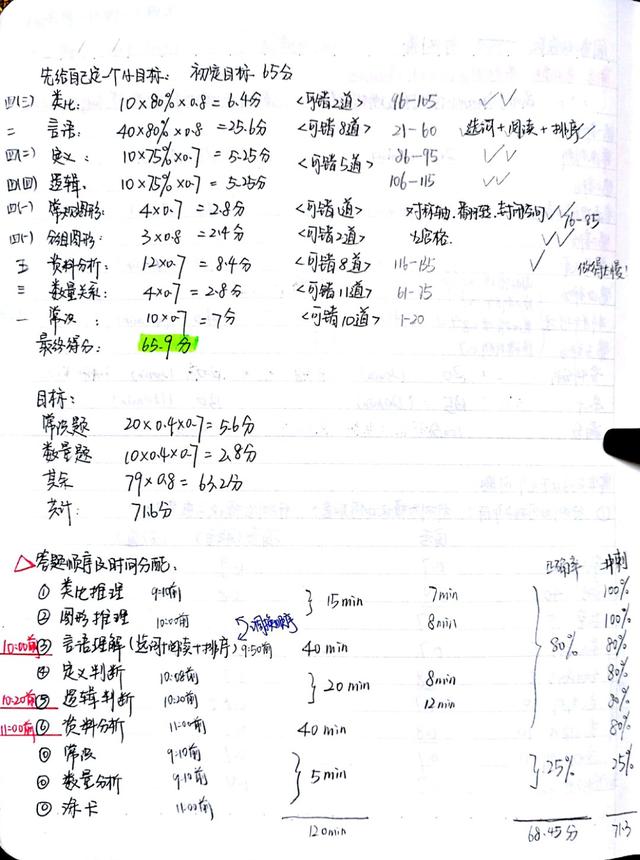 先给自己定一个小目标: 初定目标 65分
四(三) 类比: 10×80%×0.8=6.4分 <可错2道> 96-105 ✓✓
二 言语: 40×80%×0.8=25.6分 <可错8道> 21-60 选词+阅读+排序✓
四(二) 定义: 10×75%×0.7=5.25分 <可错5道> 86-95 ✓✓
四(四) 逻辑: 10×75%×0.7=5.25分 106-115 ✓✓
四(一) 常规图形: 4×0.7=2.8分 <可错1道> 对称轴、封闭空间 ✓✓ 76-85
四(一) 分组图形: 3×0.8=2.4分 <可错2道> 为合格. ✓✓
五 资料分析: 12×0.7=8.4分 <可错8道> ✓ 做得太慢!
三 数量关系: 4×0.7=2.8分 <可错11道> 61-75
一 常识: 10×0.7=7分 <可错10道> 1-20
最终得分: 65.9分
目标:
常识题 20×0.4×0.7=5.6分
数量题 10×0.4×0.7=2.8分
其余 79×0.8=63.2分
共计: 71.6分
△答题顺序及时间分配: 正确率 冲刺
① 类比推理 9:10前 15min 7min 100%
② 图形推理 10:00前 8min 100%
10:00前 ③ 言语理解(选词+阅读+排序) 9:50前 调换顺序 40min 80% 80%
④ 定义判断 10:08前 20min 8min 80%
10:20前 ⑤ 逻辑判断 10:20前 12min 80%
11:00前 ⑥ 资料分析 11:00前 40min 80%
⓪ 常识 9:10前 5min 25% 25%
⓪ 数量分析 9:10前
⓪ 涂卡 11:00前
120min 68.45分 71.3